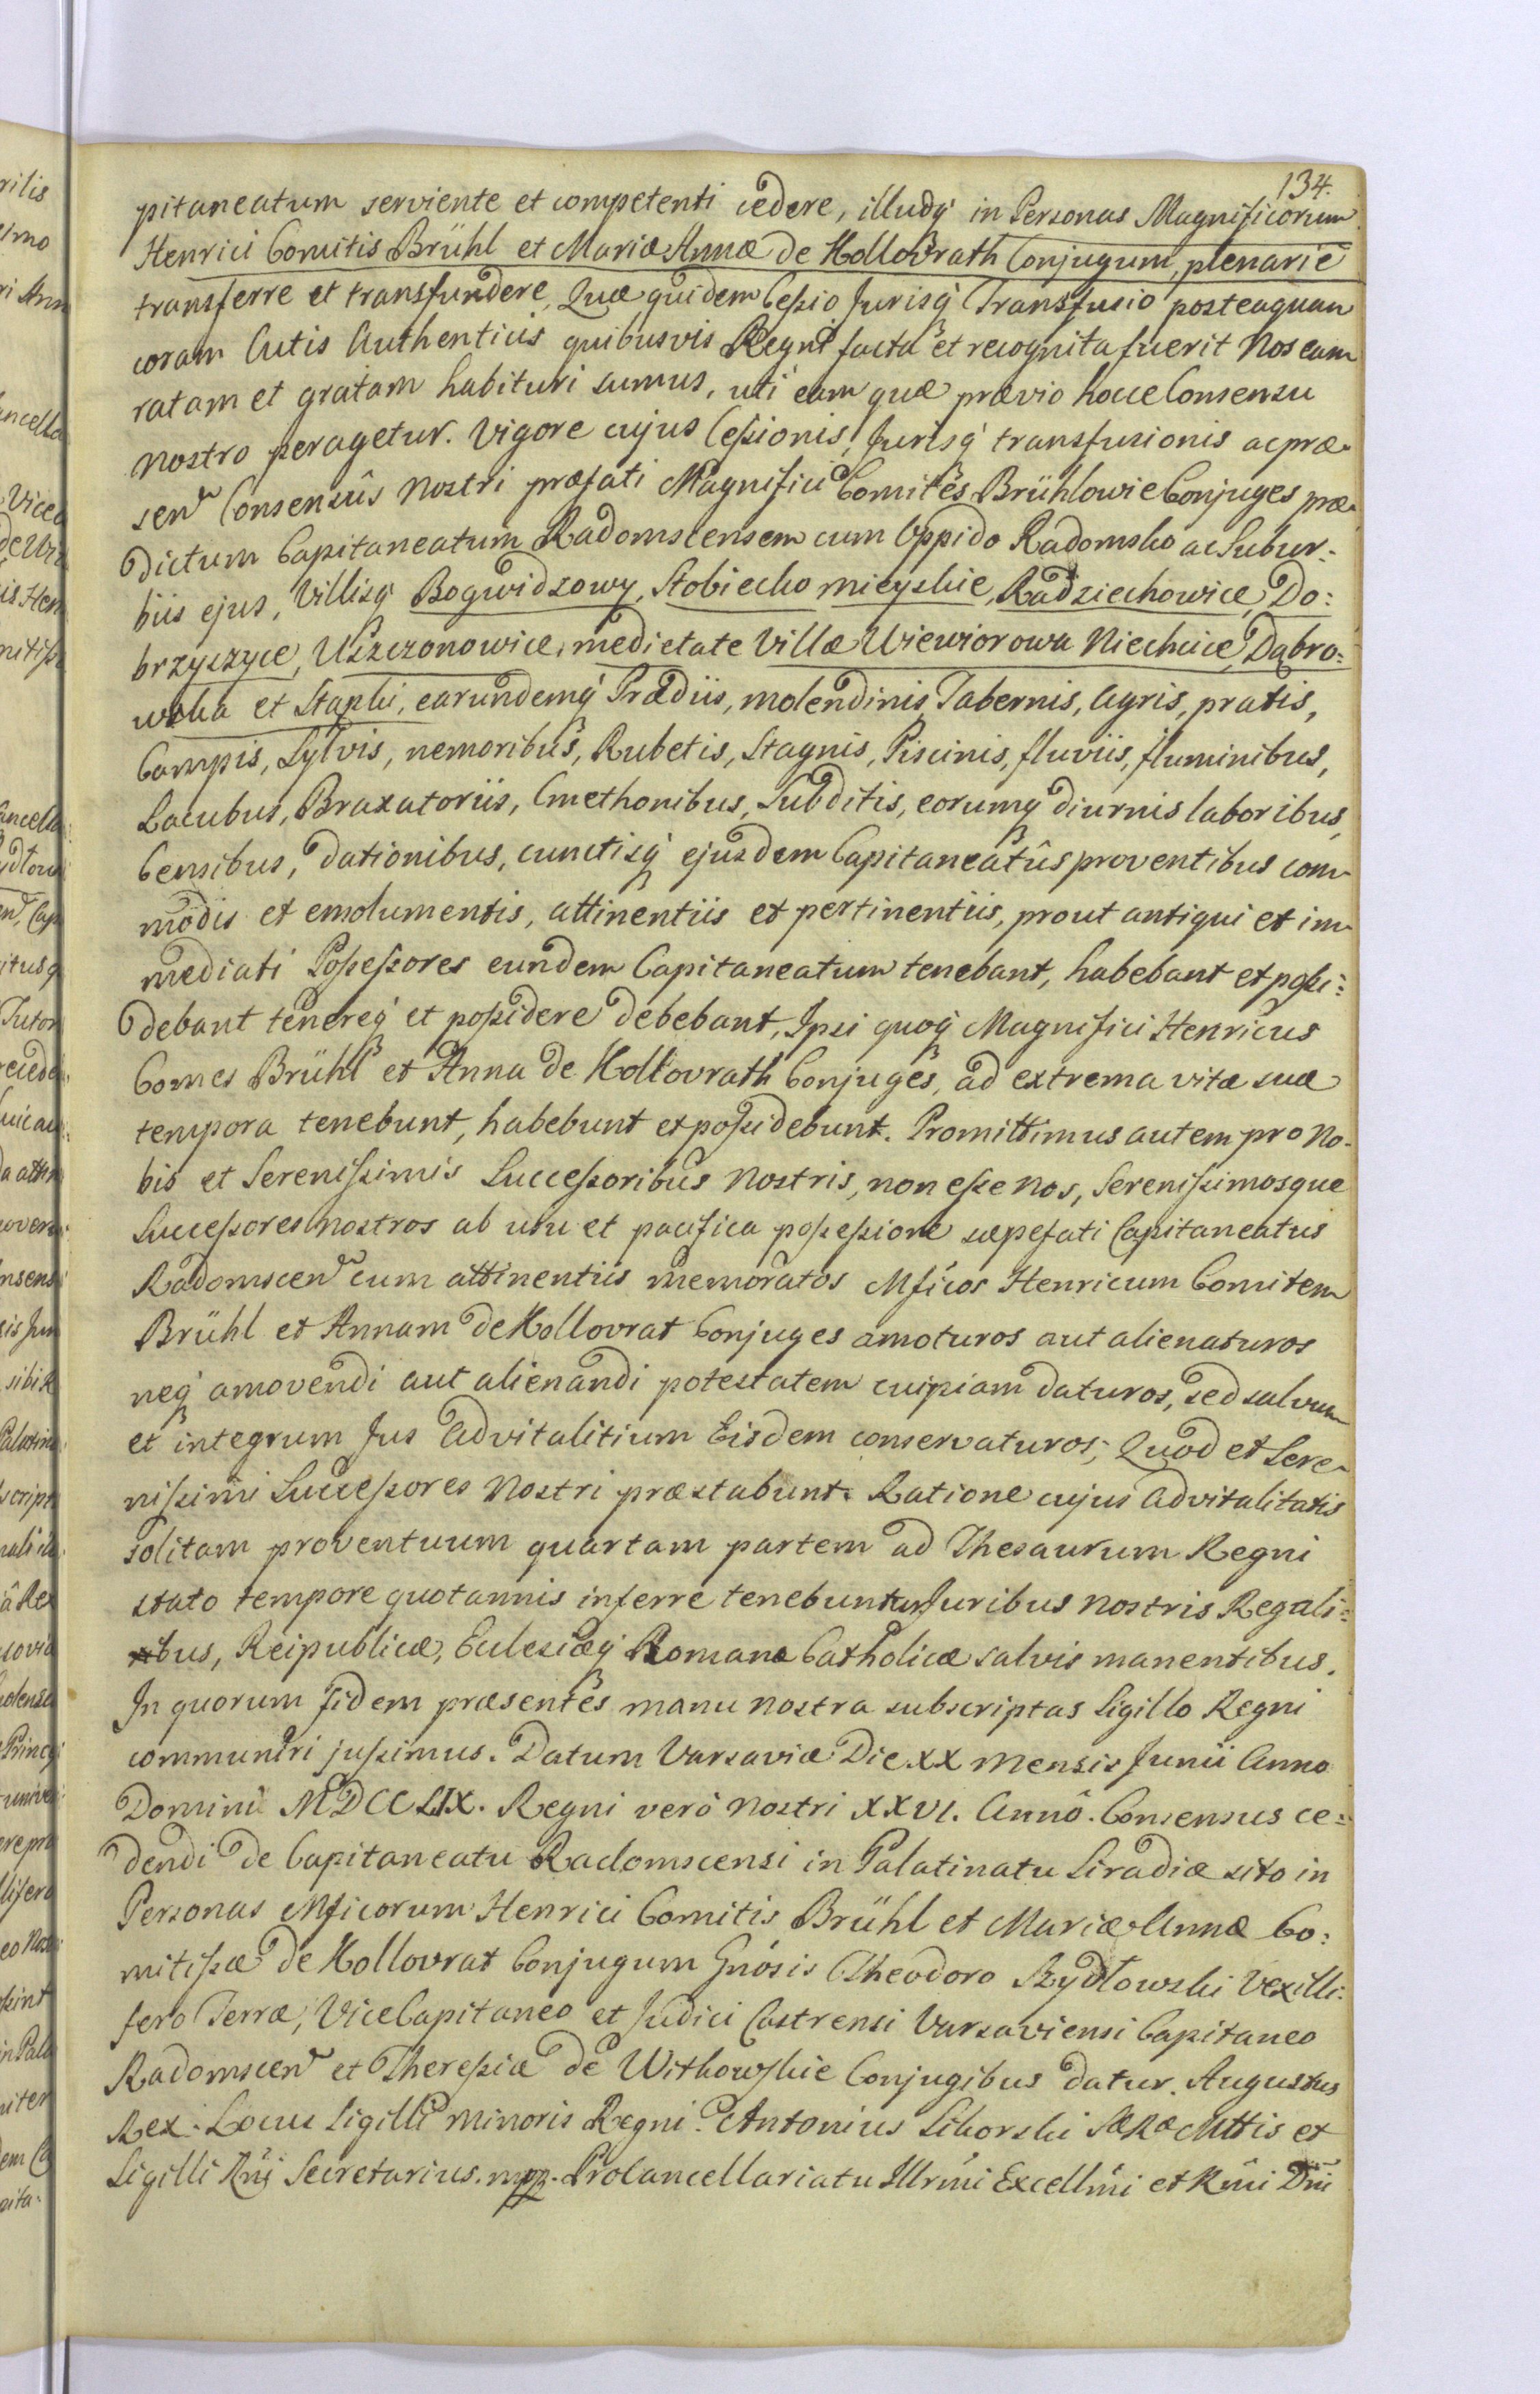 134.
pitaneatum serviente et competenti cedere, illudq́ in Personas Magnificorum
Henrici Comitis Brühl et Mariæ Annæ de Kollovrath Conjugum, plenarie
transferre et transfundere, Quæ quidem Ceſsio Jurisq́ Transfusio posteaquam
coram Actis Authenticis quibusvis Regni facta et recognita fuerit Nos eam
ratam et gratam habituri sumus, uti eam quæ prævio hocce Consensu
Nostro peragetur. Vigore cujus Ceſsionis, Jurisq́ transfusionis ac præ-
sen Consensûs Nostri præfati Magnifici Comites Brühlowie Conjuges præ-
dictum Capitaneatum Radomscensem cum Oppido Radomsko ac Subur-
biis ejus, Villisq́ Bogwidzowy, Stobiecko mieyskie, Radziechowice, Do:
brzyczyce, Uszczonowice, medietate Villæ Wiewiorowa Niechcice, Dąbro:
wka et Stapki, earundemq́ Prædiis, molendinis, Tabernis, Agris, pratis,
Campis, Sylvis, nemoribus, Rubetis, Stagnis, Piscinis, fluviis, fluminibus,
Lacubus, Braxatoriis, Cmethonibus, Subditis, eorumq́ diurnis laboribus,
Censibus, dationibus, cunctisq́ ejusdem Capitaneatûs proventibus com-
modis et emolumentis, attinentiis et pertinentiis, prout antiqui et im-
mediati Poſseſsores eundem Capitaneatum tenebant, habebant et poſsi:
debant tenereq́ et poſsidere debebant, Ipsi quoq́ Magnifici Henricus
Comes Brühl et Anna de Kollovrath Conjuges, ad extrema vitæ suæ
tempora tenebunt, habebunt et poſsidebunt. Promittimus autem pro No-
bis et Sereniſsimis Succeſsoribus Nostris, non eſse nos, Sereniſsimosque
Succeſsores Nostros ab usu et pacifica poſseſsione sæpefati Capitaneatus
Radomscen cum attinentiis memoratos Mficos Henricum Comitem
Brühl et Annam de Kollovrat Conjuges amoturos aut alienaturos
neq́ amovendi aut alienandi potestatem cuipiam daturos, sed salvum
et integrum Jus Advitalitium Eisdem conservaturos; Quod et Sere-
niſsimi Succeſsores Nostri præstabunt. Ratione cujus Advitalitatis
solitam proventuum quartam partem ad Thesaurum Regni
stato tempore quotannis inferre tenebuntur Juribus Nostris Regali:
bus, Reipublicæ, Eclesiæq́ Romanæ Catholicæ salvis manentibus.
In quorum fidem præsentes manu nostra subscriptas Sigillo Regni
communiri juſsimus. Datum Varsaviæ Die XX Mensis Junii Anno
Domini MDCCLIX. Regni verò Nostri XXVI. Annô. Consensus ce:
dendi de Capitaneatu Radomscensi in Palatinatu Siradiæ sito in
Personas Mficorum Henrici Comitis Brühl et Mariæ Annæ Co:
mitiſsæ de Kollovrat Conjugum Gnósis Theodoro Szydłowski Vexilli:
fero Terræ, ViceCapitaneo et Judici Castrensi Varsaviensi Capitaneo
Radomscen et Thereſsiæ de Witkowskie Conjugibus datur. Augustus
Rex. Locus Sigilli Minoris Regni. Antonius Sikorski SæRæ Mttis et
Sigilli Rńi Secretarius. mpp. Procancellariatu Illrmi Excellmi et Rmi Dni